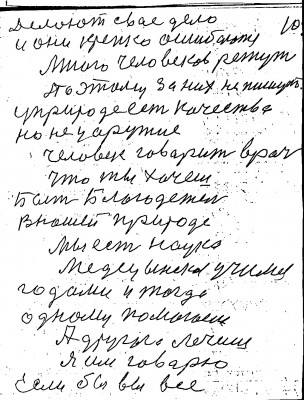 делоют свае дело 10
и они крепко ошибаютя
Много человеков режут
Поэтому за них не пишут
у природе ест качества
но не царутие
человек говарит врач
что ты хочеш
Быт благодетел
в нашей природе
Мы ест наука
Медецынская учимся
годами и тогда
одному помогаем
А другого лечим
я им говарю
Если бы вы все